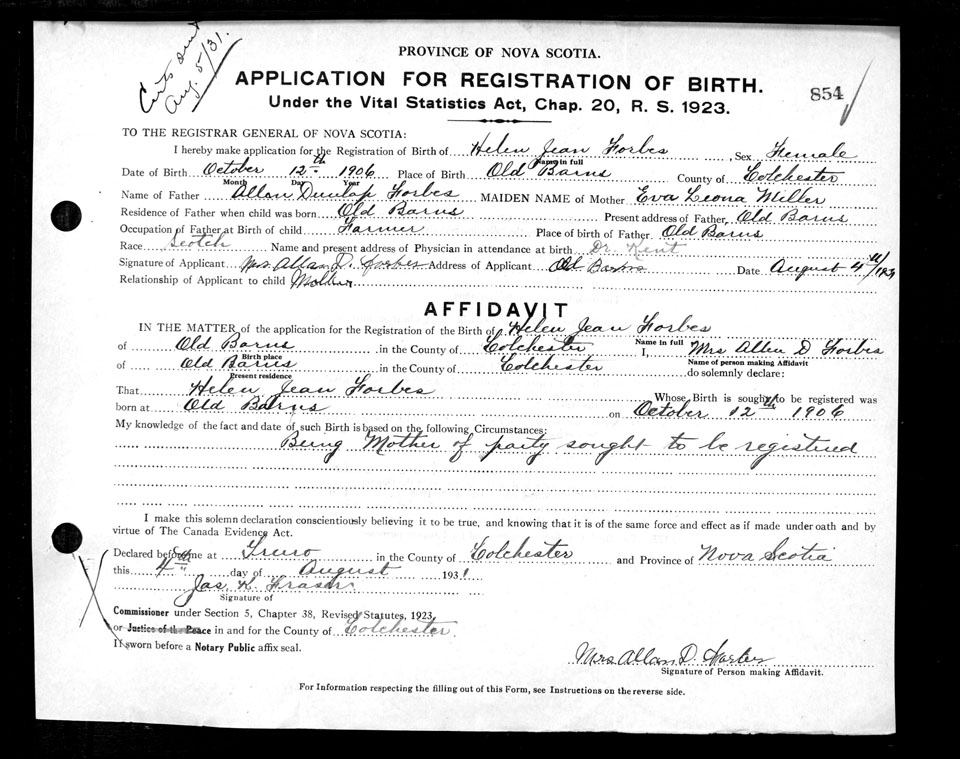 Certs sent
Aug. 5/31.
PROVINCE OF NOVA SCOTIA.
APPLICATION FOR REGISTRATION OF BIRTH.
854
Under the Vital Statistics Act, Chap. 20, R. S. 1923.
TO THE REGISTRAR GENERAL OF NOVA SCOTIA:
I hereby make application for the Registration of Birth of Helen Jean Forbes, Sex Female
Name in full
Date of Birth October 12th 1906 Place of Birth Old Barns County of Colchester
Month Day Year
Name of Father Allan Dunlap Forbes MAIDEN NAME of Mother Eva Leona Miller
Residence of Father when child was born Old Barns Present address of Father Old Barns
Occupation of Father at Birth of child Farmer Place of birth of Father Old Barns
Race Scotch Name and present address of Physician in attendance at birth Dr. Kent
Signature of Applicant Mrs Allan D. Forbes Address of Applicant Old Barns Date August 4th/1931
Relationship of Applicant to child Mother
AFFIDAVIT
IN THE MATTER of the application for the Registration of the Birth of Helen Jean Forbes
Name in full
of Old Barns in the County of Colchester I, Mrs Allen D Forbes
Birth place Name of person making Affidavit
of Old Barns in the County of Colchester do solemnly declare:
Present residence
That Helen Jean Forbes Whose Birth is sought to be registered was
born at Old Barns on October 12th 1906
My knowledge of the fact and date of such Birth is based on the following Circumstances:
Being Mother of party sought to be registered
I make this solemn declaration conscientiously believing it to be true, and knowing that it is of the same force and effect as if made under oath and by
virtue of The Canada Evidence Act.
Declared before me at Truro in the County of Colchester and Province of Nova Scotia
this 4th day of August 1931
Jas. K. Fraser
Signature of
Commissioner under Section 5, Chapter 38, Revised Statutes, 1923,
or Justice of the Peace in and for the County of Colchester.
If sworn before a Notary Public affix seal.
Mrs Allan D. Forbes
Signature of Person making Affidavit.
For Information respecting the filling out of this Form, see Instructions on the reverse side.